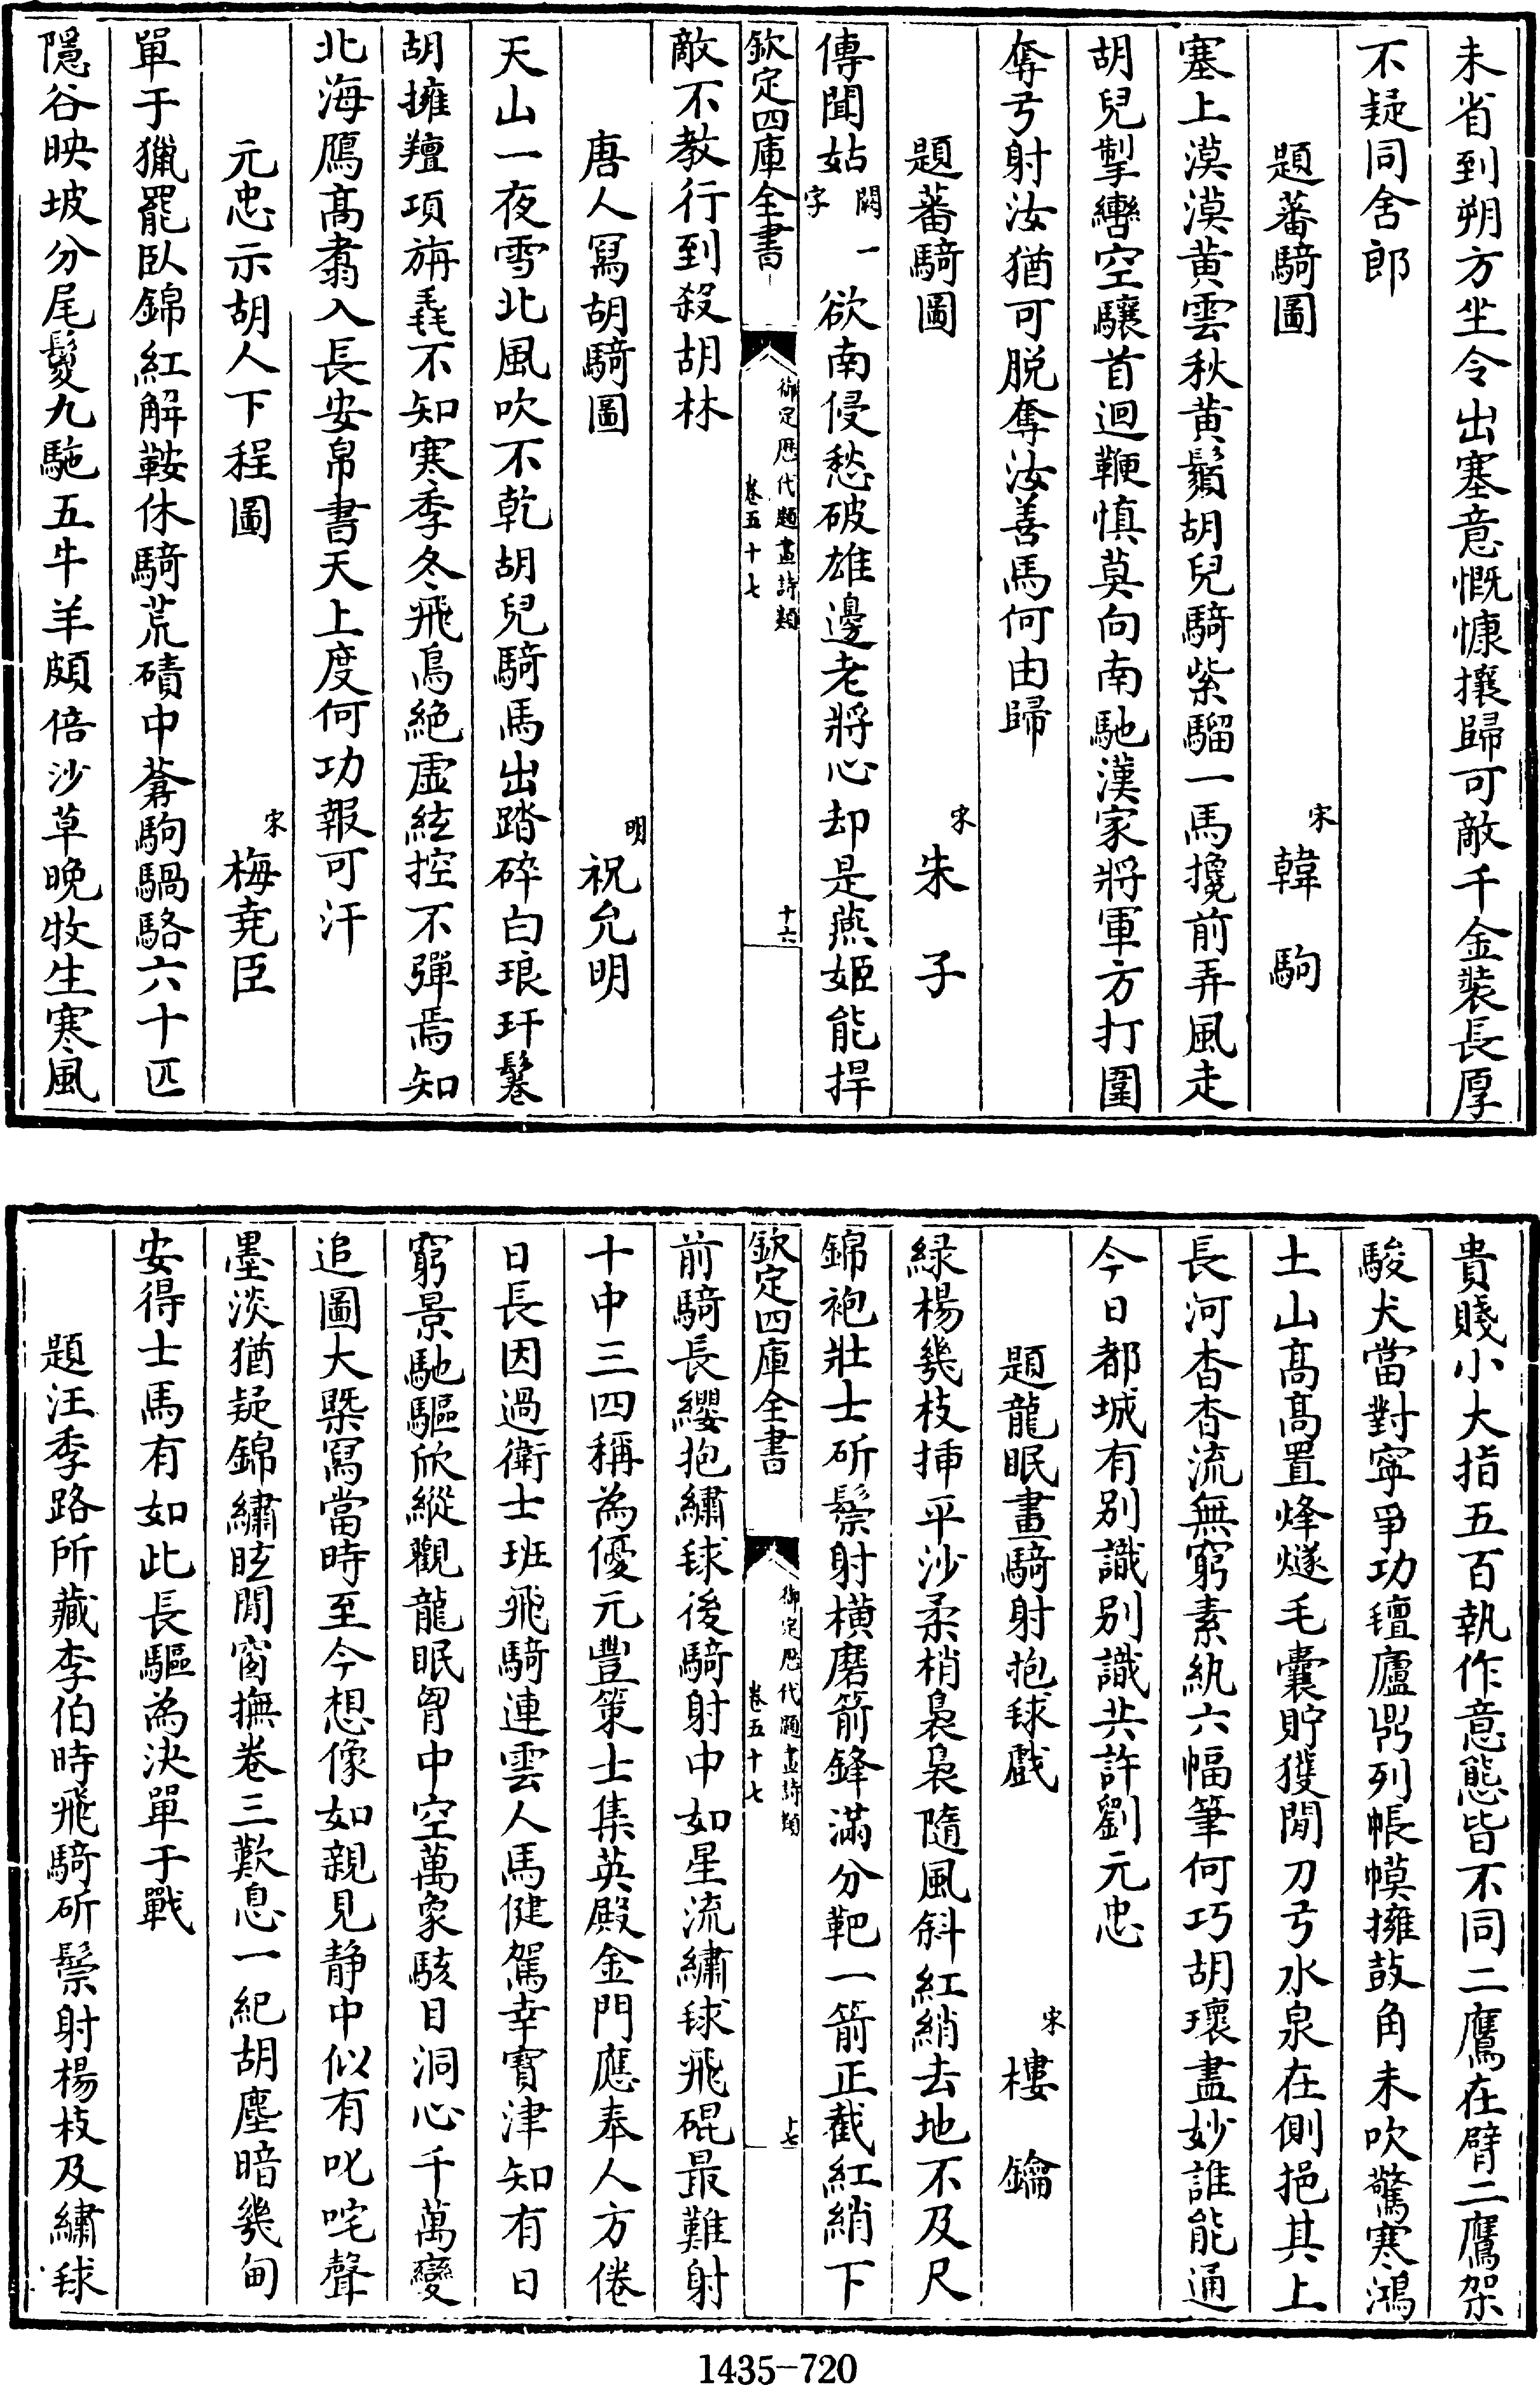 未省到朔方坐令出塞意慨慷攘歸可敵千金裝長厚
不疑同舍郎
題蕃騎圖
宋韓駒
塞上漠漠黄雲秋黄鬚胡兒騎紫騮一馬攙前弄風走
胡兒掣轡空驤首迴鞭慎莫向南馳漢家將軍方打圍
奪弓射汝猶可脱奪汝善馬何由歸
題蕃騎圖
宋朱子
傳聞姑闕一字欲南侵愁破雄邊老將心却是燕姬能捍
欽定四庫全書
御定歷代題畫詩類
卷五十七
十六
敵不教行到殺胡林
唐人冩胡騎圖
明祝允明
天山一夜雪北風吹不乾胡兒騎馬出踏碎白琅玕鬈
胡擁羶項旃毳不知寒季冬飛鳥絶虛絃控不彈焉知
北海鴈高翥入長安帛書天上度何功報可汗
元忠示胡人下程圖
宋梅堯臣
單于獵罷臥錦紅解鞍休騎荒磧中蒼駒騧駱六十匹
隱谷映坡分尾鬉九駞五牛羊頗倍沙草晚牧生寒風
貴賤小大指五百執作意態皆不同二鷹在臂二鷹架
駿犬當對寧爭功氊廬鼎列帳幙擁鼓角未吹驚寒鴻
土山高高置烽燧毛囊貯獲閒刀弓水泉在側挹其上
長河杳杳流無窮素紈六幅筆何巧胡瓌盡妙誰能通
今日都城有别識别識共許劉元忠
題龍眠畫騎射抱毬戲
宋樓鑰
緑楊幾枝挿平沙柔梢裊裊隨風斜紅綃去地不及尺
錦袍壯士斫鬃射横磨箭鋒滿分靶一箭正截紅綃下
欽定四庫全書
御定歷代題畫詩類
卷五十七
十七
前騎長纓抱繡毬後騎射中如星流繡毬飛硍最難射
十中三四稱為優元豐策士集英殿金門應奉人方倦
日長因過衛士班飛騎連雲人馬健駕幸寶津知有日
窮景馳驅欣縱觀龍眠胷中空萬象駭目洞心千萬變
追圖大槩冩當時至今想像如親見静中似有叱咤聲
墨淡猶疑錦繡眩閒窗撫卷三歎息一紀胡塵暗幾甸
安得士馬有如此長驅為決單于戰
題汪季路所藏李伯時飛騎斫鬃射楊枝及繡毬
1435-720